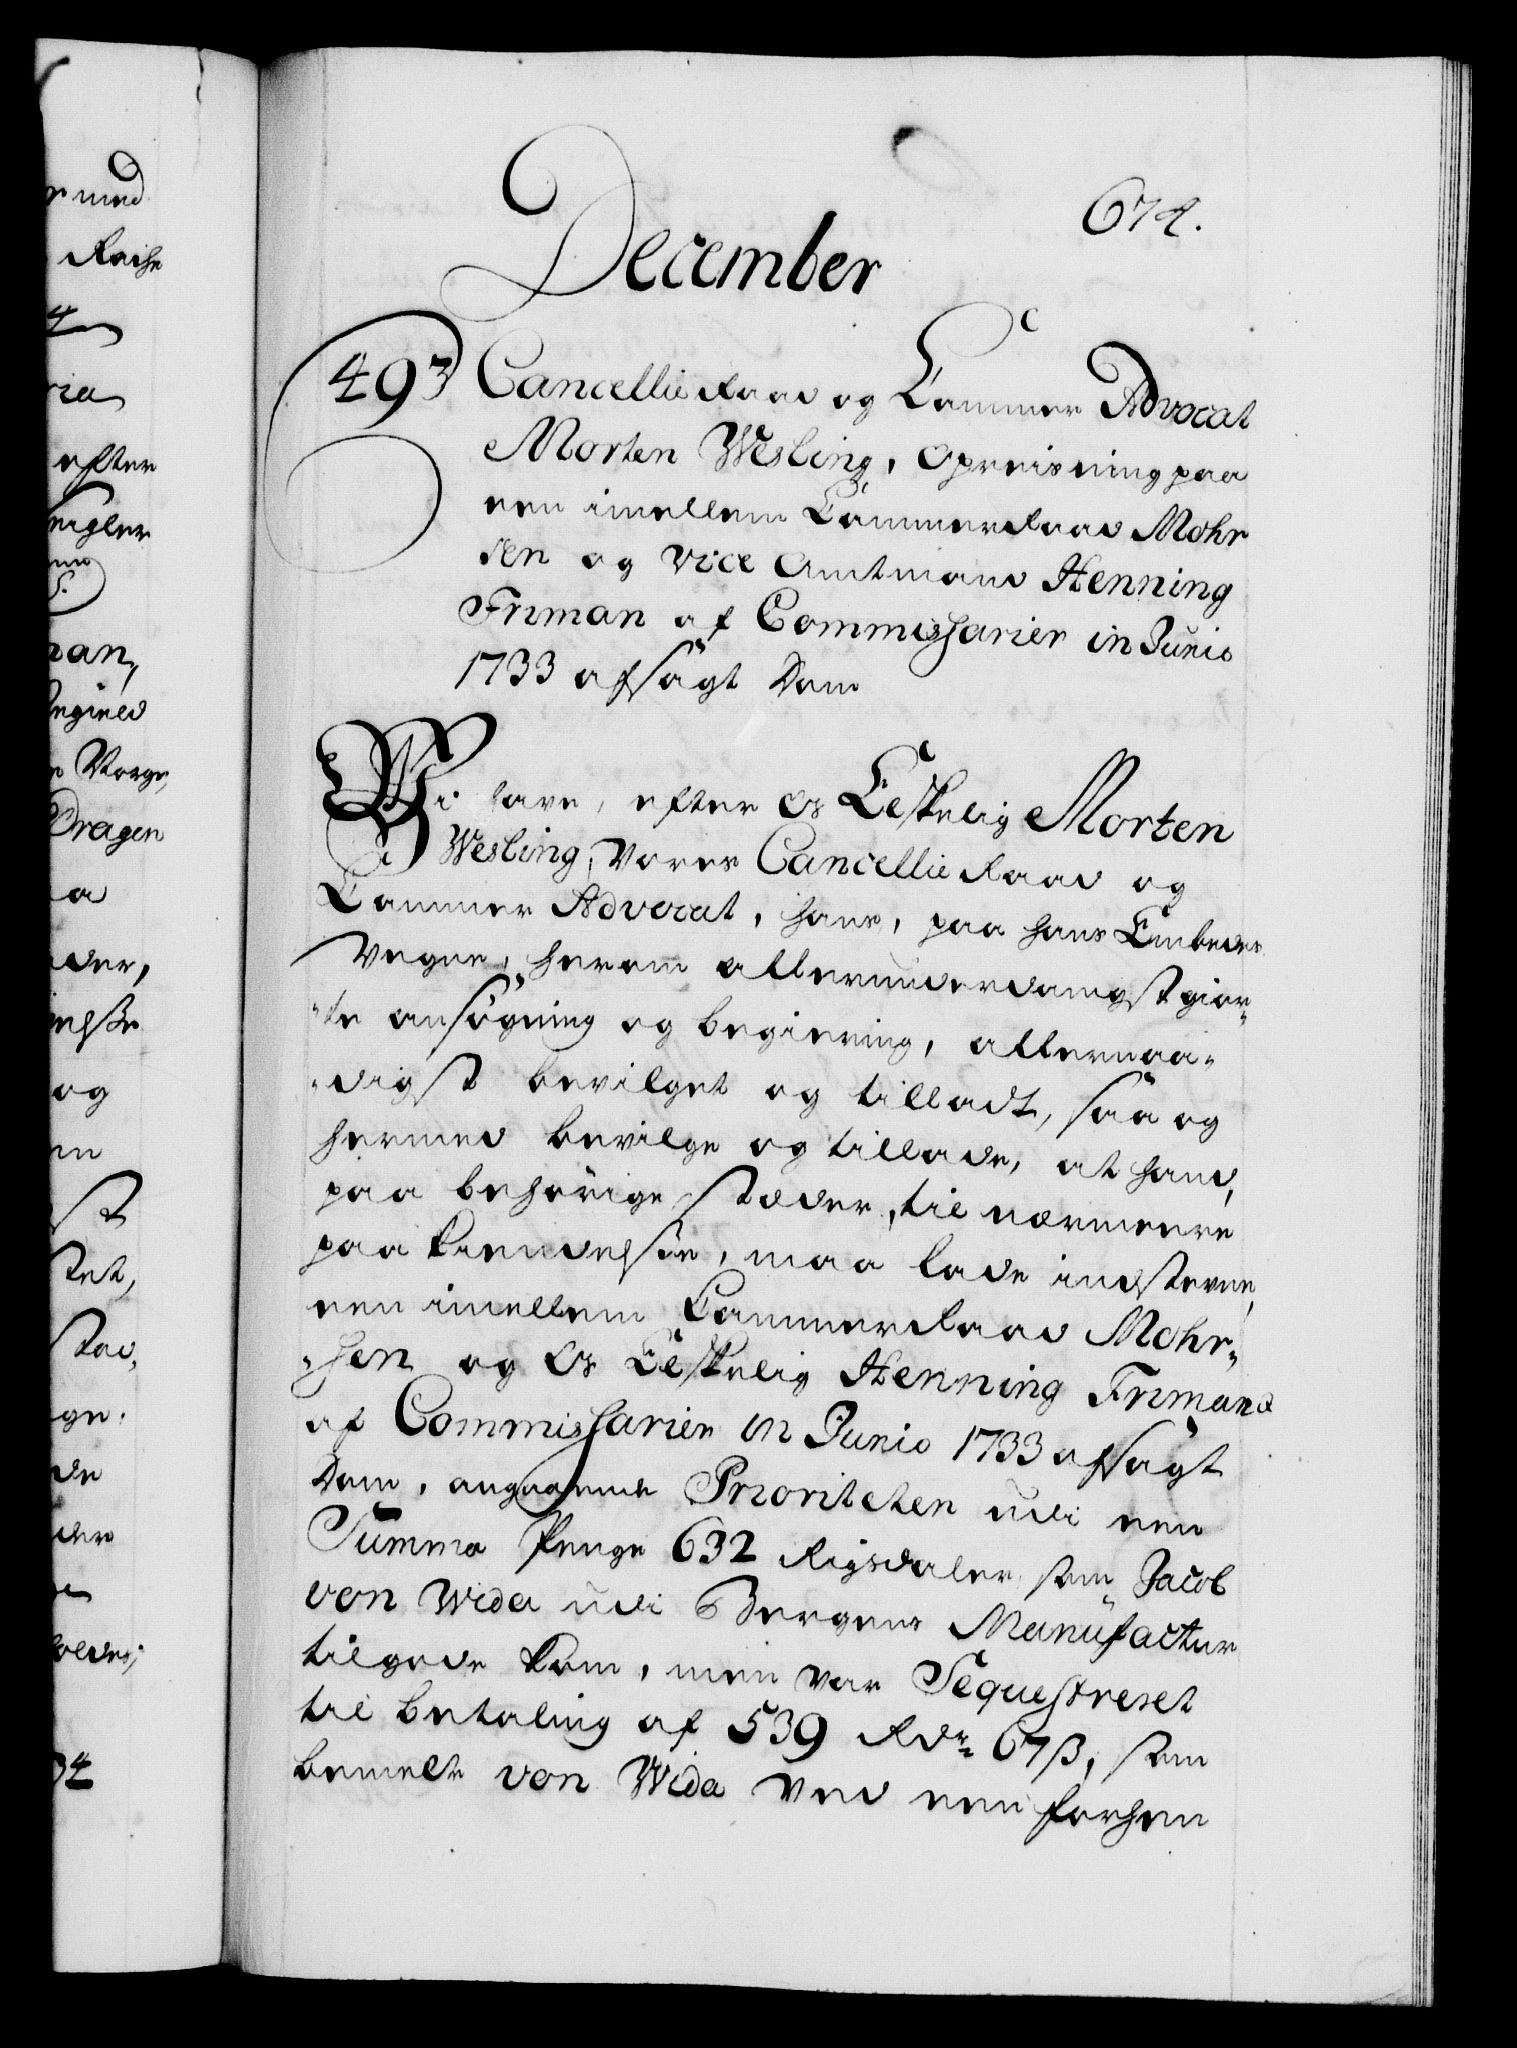 December
674.
493 Cancellie Raad og Cammer Advocat
Morten Wesling, Opreisning paa
een imellem Cammerraad Mohr
sen og Vice Amtmand Henning
Friman af Commissarier in Junio
1733 afsagt Dom
Wi have, efter Os Elskelig Morten
Wesling, Vores Cancellie Raad og
Cammer Advocat, hans, paa hans Embedes
Vegne, herom allerunderdanigst gior-
te ansøgning og begiering, allernaa-
digst bevilget og tilladt, saa og
hermed bevilge og tillade, at hand,
paa behørige stæder, til nærmere
paa kiendelse, maa lade indstevne
een imellem Cammerraad Mohr-
sen og Os Elskelig Henning Frimand
af Commissarier in Junio 1733 afsagt
Dom, angaaende Prioriteten udi een
Summa Penge 632 Rigsdaler som Jacob
von Wida udi Bergens Manufactur
tilgode kom, men var Sequestreret
til betaling af 539 Rdr 67 ß, som
bemelte von Wida ved een forhen
r med
Raise
ria
efter
an,
Vorge,
Dragen
a
der,
og
st
tet,
stæd,
ge
de
der
34